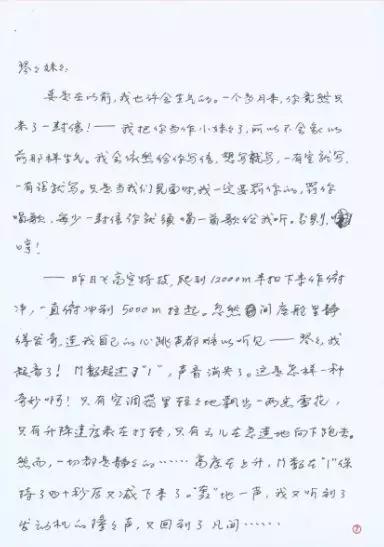 琴々妹々：
要是在以前，我也许会生气的。一个多月来，你竟然只
来了一封信！——我把你当作小妹々了，所以不会象以
前那样生气。我会依然给你写信，想写就写，一有空就写，
一有话就写。只是当我们见面时，我一定要罚你的，罚你
唱歌，每少一封信你就须唱一首歌给我听。否则，
哼！
——昨日飞高空特技，爬到12000m来扣下来作俯
冲，一直俯冲到5000m拉起。忽然间座舱里静
得出奇，连我自己的心跳声都难以听见——琴々，我
超音了！M数超过了“1”，声音消失了。这是怎样一种
奇妙啊！只有空调箱里轻々地飘出一两朵雪花，
只有升降速度表在打转，只有云儿在急速地向下跑去。
然而，一切都是静々的……高度在上升，M数在“1”保
持了四十秒后又减下来了。“轰”地一声，我又听到了
发动机的隆々声，又回到了凡间……
②